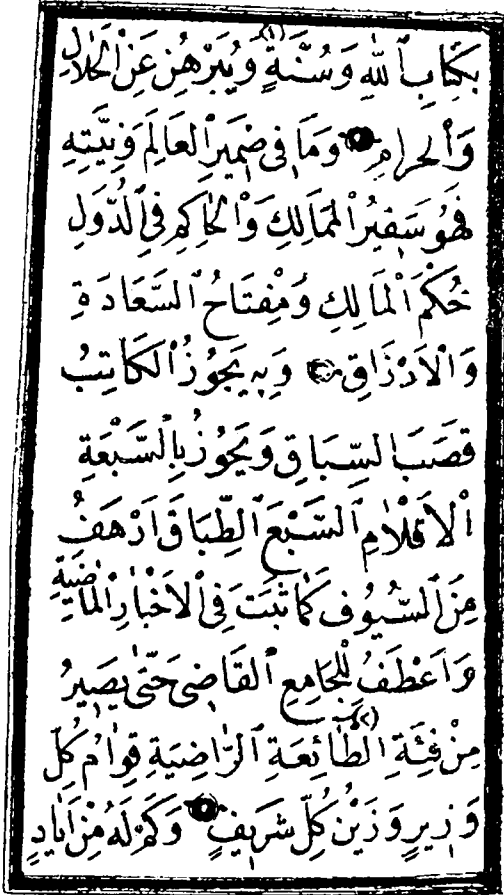 بِكِتَابِ ٱللّٰهِ وَسُنَّةٍ (١) وَيُبَرْهِنُ عَنِ ٱلْحَلَالِ
وَٱلْحَرَامِ وَمَا فِى ضَمِيرِ ٱلْعَالَمِ وَنِيَّتِهِ
فَهُوَ سَفِيرُ ٱلْمَمَالِكِ وَٱلْحَاكِمِ فِى ٱلدُّوَلِ
حُكْمَ ٱلْمَالِكِ وَمِفْتَاحُ ٱلسَّعَادَةِ
وَٱلْاَرْزَاقِ وَبِهِ يَجُوزُ ٱلْكَاتِبُ
قَصَبَ ٱلسِّبَاقِ وَيَجُوزُ بِٱلسَّبْعَةِ
ٱلْاَقْلَامِ ٱلسَّبْعَ ٱلطِّبَاقَ اَرْهَفُ
مِنَ ٱلسُّيُوفِ كَمَا ثَبَتَ فِى ٱلْاَخْبَارِ ٱلْمَاضِيَةِ
وَاَعْطَفُ لِلْجَامِعِ ٱلْقَاضِى حَتّٰى يَصِيرُ
مِنْ فِئَةِ ٱلطَّائِعَةِ (٢) ٱلرَّاضِيَةِ قِوَامُ كُلِّ
وَزِيرٍ وَزَيْنُ كُلِّ شَرِيفٍ وَكَمْ لَهُ مِنْ اَيَادٍ